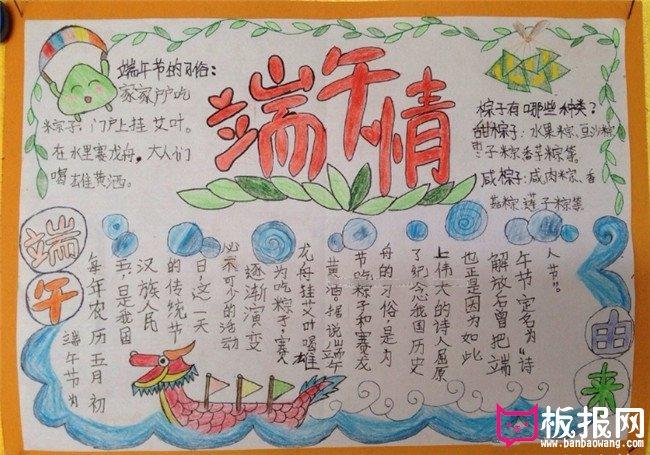 端午情
端午节的习俗:
家家户户吃
粽子,门户上挂艾叶。
在水里赛龙舟。大人们
喝雄黄酒。
粽子有哪些种类?
甜粽子:水果粽、豆沙粽
枣子粽、香芋粽等。
咸粽子:咸肉粽、香
菇粽、莲子粽等。
端午
由来
端午节为
每年农历五月初
五,是我国
汉族人民
的传统节
日,这一天
必不可少的活动
逐渐演变
为吃粽子,赛
龙舟挂艾叶喝雄
黄酒。据说端午
节吃粽子和赛龙
舟的习俗是为
了纪念我国历史
上伟大的诗人屈原
也正是因为如此
解放后曾把端
午节定名为“诗
人节”。
板报网
www.banbaowang.com